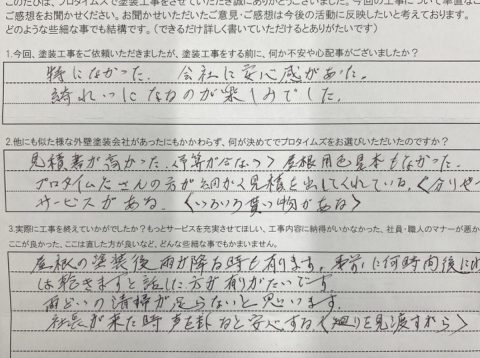 このたびは、プロタイムズで塗装工事をさせていただき誠にありがとうございました。今回の工事について率直な
ご感想をお聞かせください。お聞かせいただいたご意見・ご感想は今後の活動に反映したいと考えております。
どのような些細な事でも結構です。(できるだけ詳しく書いていただけるとありがたいです)
1.今回、塗装工事をご依頼いただきましたが、塗装工事をする前に、何か不安や心配事がございましたか?
特になかった。会社に安心感があった。
綺れいになるのが楽しみでした。
2.他にも似た様な外壁塗装会社があったにもかかわらず、何が決めてでプロタイムズをお選びいただいたのですか?
見積書が高かった(予算が合ない)屋根用色見本もなかった。
プロタイムズさんの方が細かく見積を出してくれている。〈分りや
サービスがある。〈いろいろ貰う物がある〉
3.実際に工事を終えていかがでしたか?もっとサービスを充実させてほしい、工事内容に納得がいかなかった、社員・職人のマナーが悪か
ここが良かった、ここは直した方が良いなど、どんな些細な事でもかまいません。
屋根の塗装後雨が降る時も有ります。事前に何時間後に
は乾きますと話した方が有りがたいです。
雨どいの清掃が足らないと思います。
社長が来た時声を卦ると安心する〈廻りを見渡すから〉